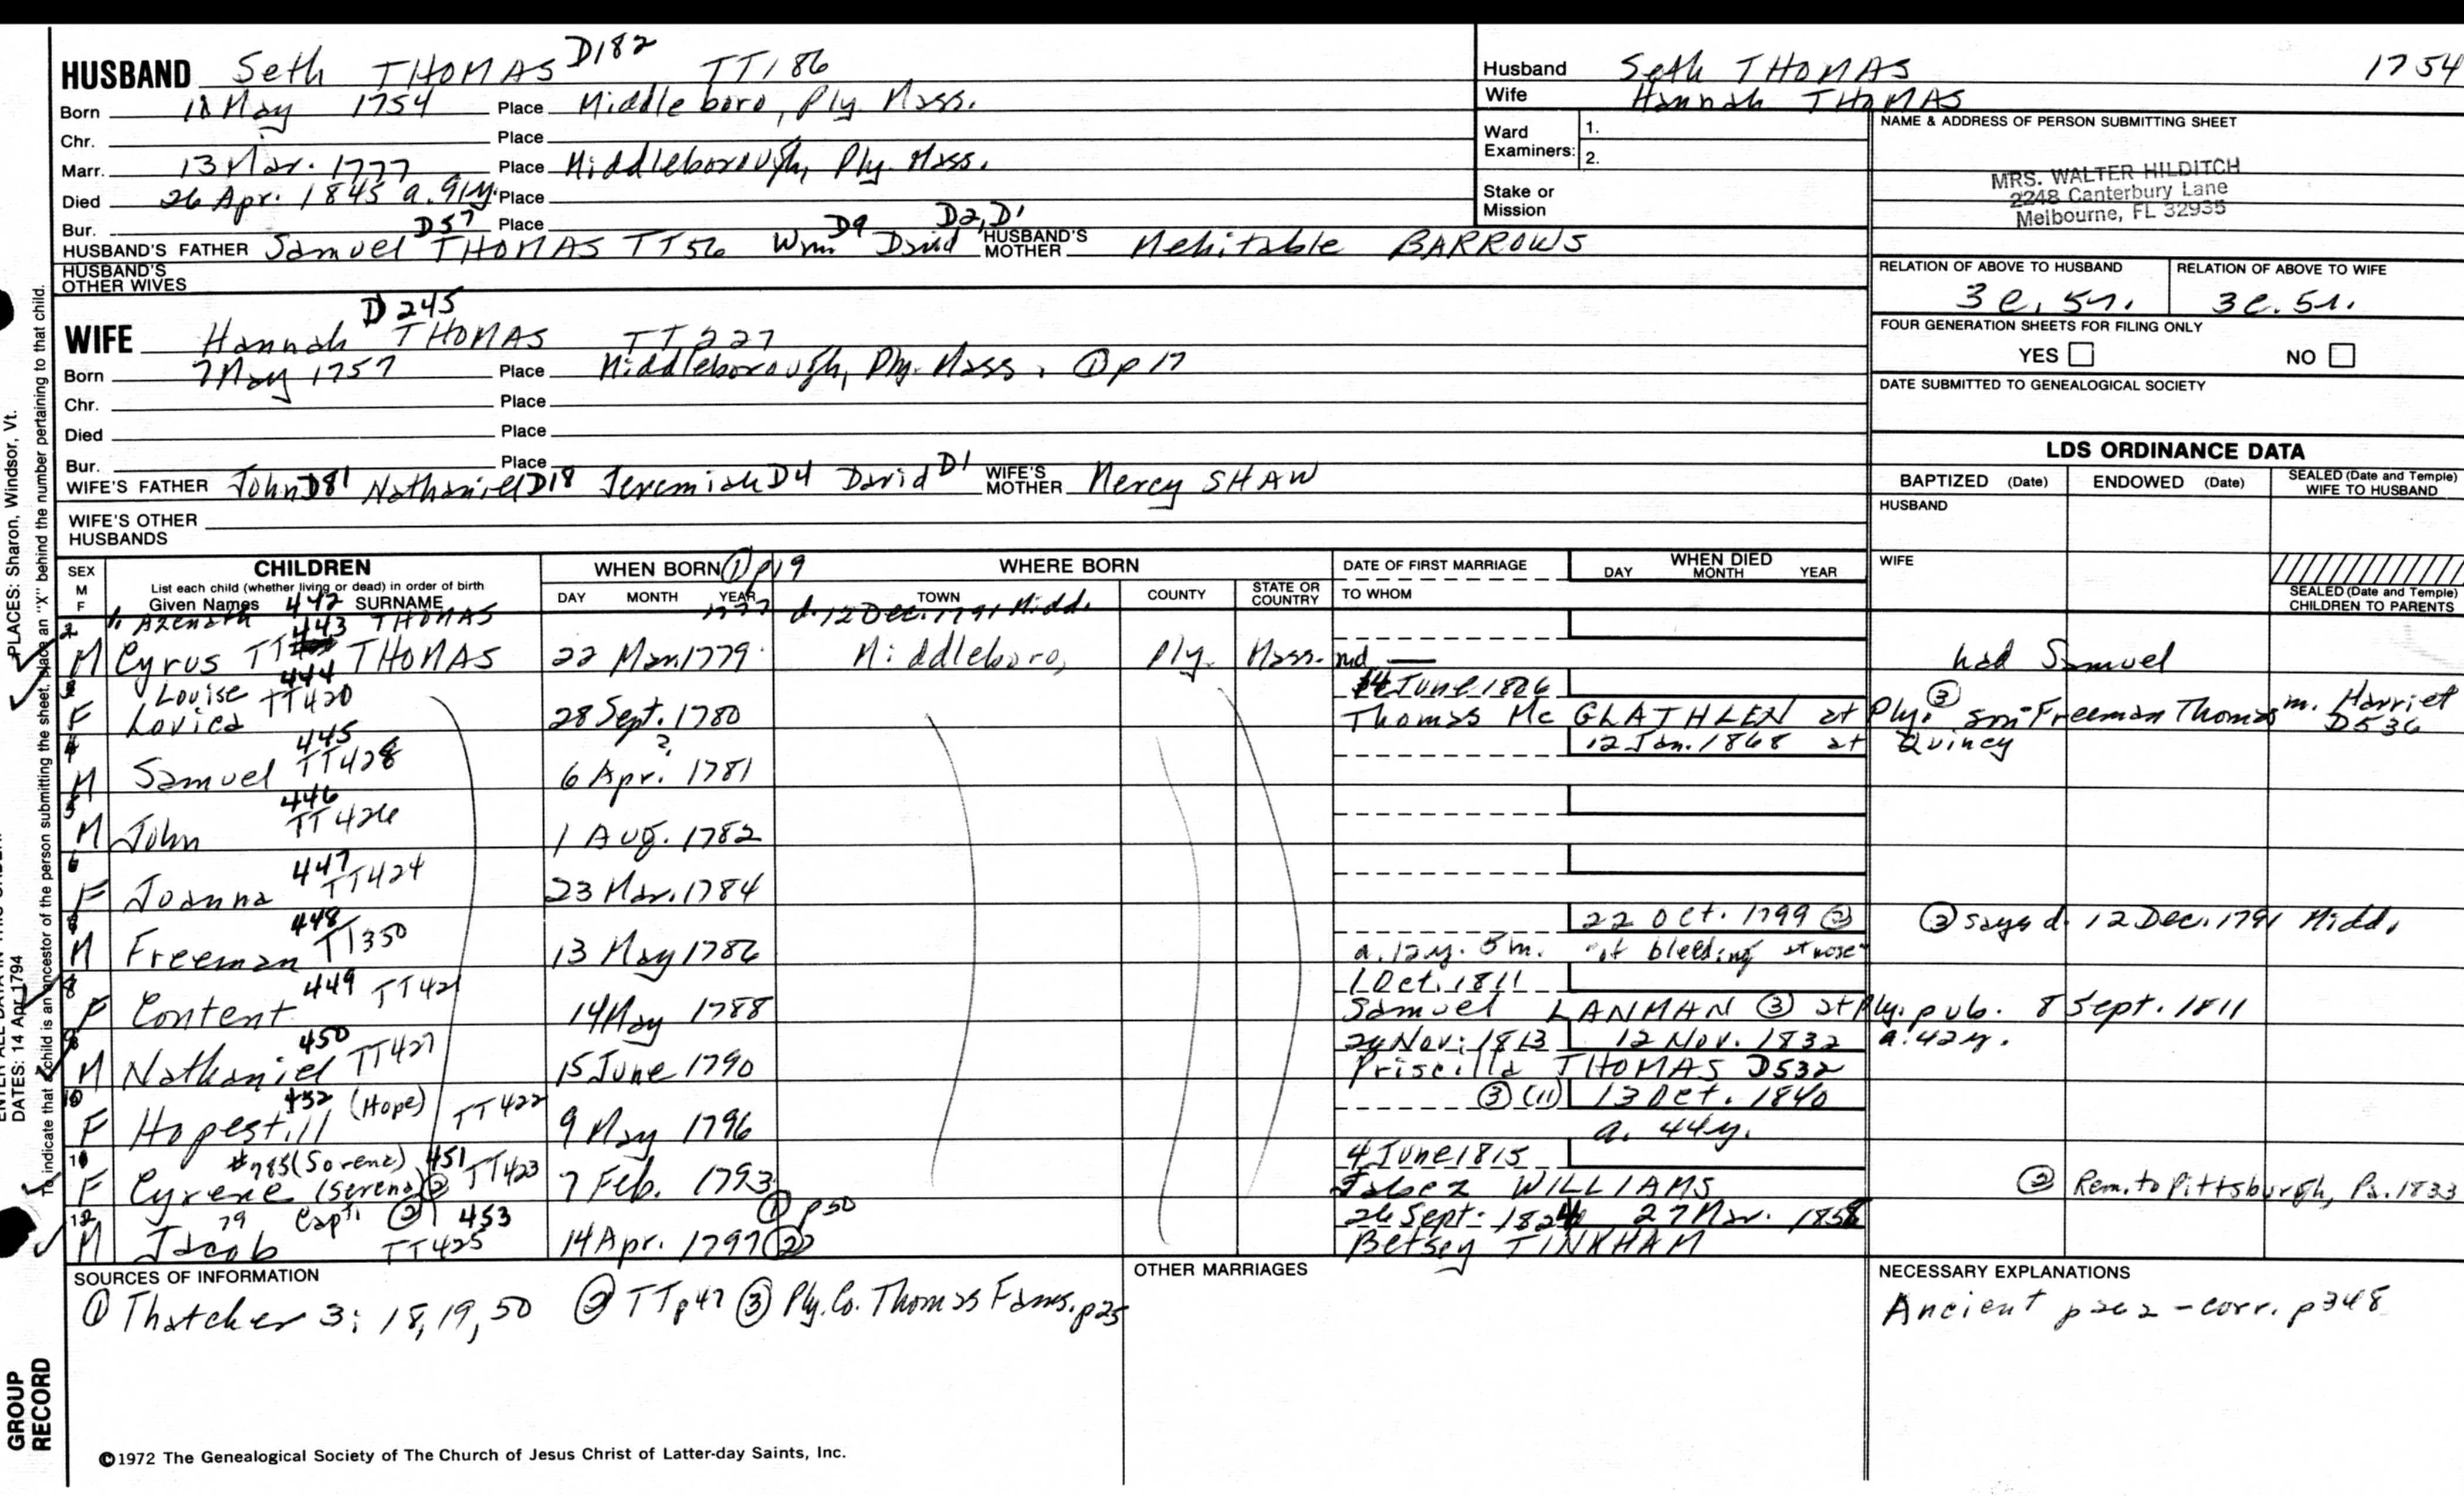 HUSBAND Seth THOMAS D182 TT186
Born 18 May 1754 Place Middleboro, Ply. Mass.
Chr. Place
Marr. 13 Mar. 1777 Place Middleborough, Ply. Mass.
Died 26 Apr. 1845 a. 91y. Place
Bur. Place
HUSBAND'S FATHER Samuel D57 THOMAS TT56 Wm D9 David D2, D1 HUSBAND'S MOTHER Mehitable BARROWS
HUSBAND'S OTHER WIVES
WIFE Hannah D245 THOMAS TT227
Born 7 May 1757 Place Middleborough, Ply. Mass. ① p 17
Chr. Place
Died Place
Bur. Place
WIFE'S FATHER John D81 Nathaniel D18 Jeremiah D4 David D1 WIFE'S MOTHER Mercy SHAW
WIFE'S OTHER HUSBANDS
Husband Seth THOMAS 1754
Wife Hannah THOMAS
Ward Examiners: 1.
2.
Stake or Mission
NAME & ADDRESS OF PERSON SUBMITTING SHEET
MRS. WALTER HILDITCH
2248 Canterbury Lane
Melbourne, FL 32935
RELATION OF ABOVE TO HUSBAND RELATION OF ABOVE TO WIFE
3c. 5r. 3c. 5r.
FOUR GENERATION SHEETS FOR FILING ONLY
YES NO
DATE SUBMITTED TO GENEALOGICAL SOCIETY
LDS ORDINANCE DATA
BAPTIZED (Date) ENDOWED (Date) SEALED (Date and Temple) WIFE TO HUSBAND
HUSBAND
WIFE
SEALED (Date and Temple) CHILDREN TO PARENTS
SEX M F CHILDREN WHEN BORN ① p 19 WHERE BORN DATE OF FIRST MARRIAGE WHEN DIED
List each child (whether living or dead) in order of birth
Given Names SURNAME DAY MONTH YEAR TOWN COUNTY STATE OR COUNTRY TO WHOM DAY MONTH YEAR
1. Azenath 442 THOMAS 1777 d. 12 Dec. 1791 Midd.
2 M Cyrus TT 443 THOMAS 22 Mar. 1779 Middleboro, Ply. Mass. md — had Samuel
3 F Louise Lovica 444 TT420 28 Sept. 1780 14 June 1806 Thomas Mc GLATHLEN at Ply. ③ son Freeman Thomas m. Harriet D536
4 M Samuel 445 TT428 6 Apr. ? 1781 12 Jan. 1868 at Quincy
5 M John 446 TT426 1 Aug. 1782
6 F Joanna 447 TT424 23 Mar. 1784
M Freeman 448 TT350 13 May 1786 22 Oct. 1799 ② a. 12y. 5m. "of bleeding at nose" ③ says d. 12 Dec. 1791 Midd.
8 F Content 449 TT421 14 May 1788 1 Oct. 1811 Samuel LANMAN ③ at Ply. pub. 8 Sept. 1811
9 M Nathaniel 450 TT427 15 June 1790 24 Nov. 1813 12 Nov. 1832 a. 42y. Priscilla THOMAS D532
10 F Hopestill 452 (Hope) TT422 9 May 1796 ③ (11) 13 Oct. 1840 a. 44y.
11 F Cyrene #785 (Sorena) 451 (Serena) ② TT423 7 Feb. 1793 4 June 1815 Jabez WILLIAMS ② Rem. to Pittsburgh, Pa. 1833
12 M Jacob 79 Capt. ② 453 TT425 14 Apr. 1797 ② ① p50 26 Sept. 1824 27 Mar. 1858 Betsey TINKHAM
SOURCES OF INFORMATION
① Thatcher 3: 18, 19, 50 ② TTp47 ③ Ply. Co. Thomas Fams. p25
OTHER MARRIAGES
NECESSARY EXPLANATIONS
Ancient p262 - corr. p348
©1972 The Genealogical Society of The Church of Jesus Christ of Latter-day Saints, Inc.
PLACES: Sharon, Windsor, Vt.
To indicate that a child is an ancestor of the person submitting the sheet, place an "X" behind the number pertaining to that child.
DATES: 14 Apr 1794
GROUP RECORD